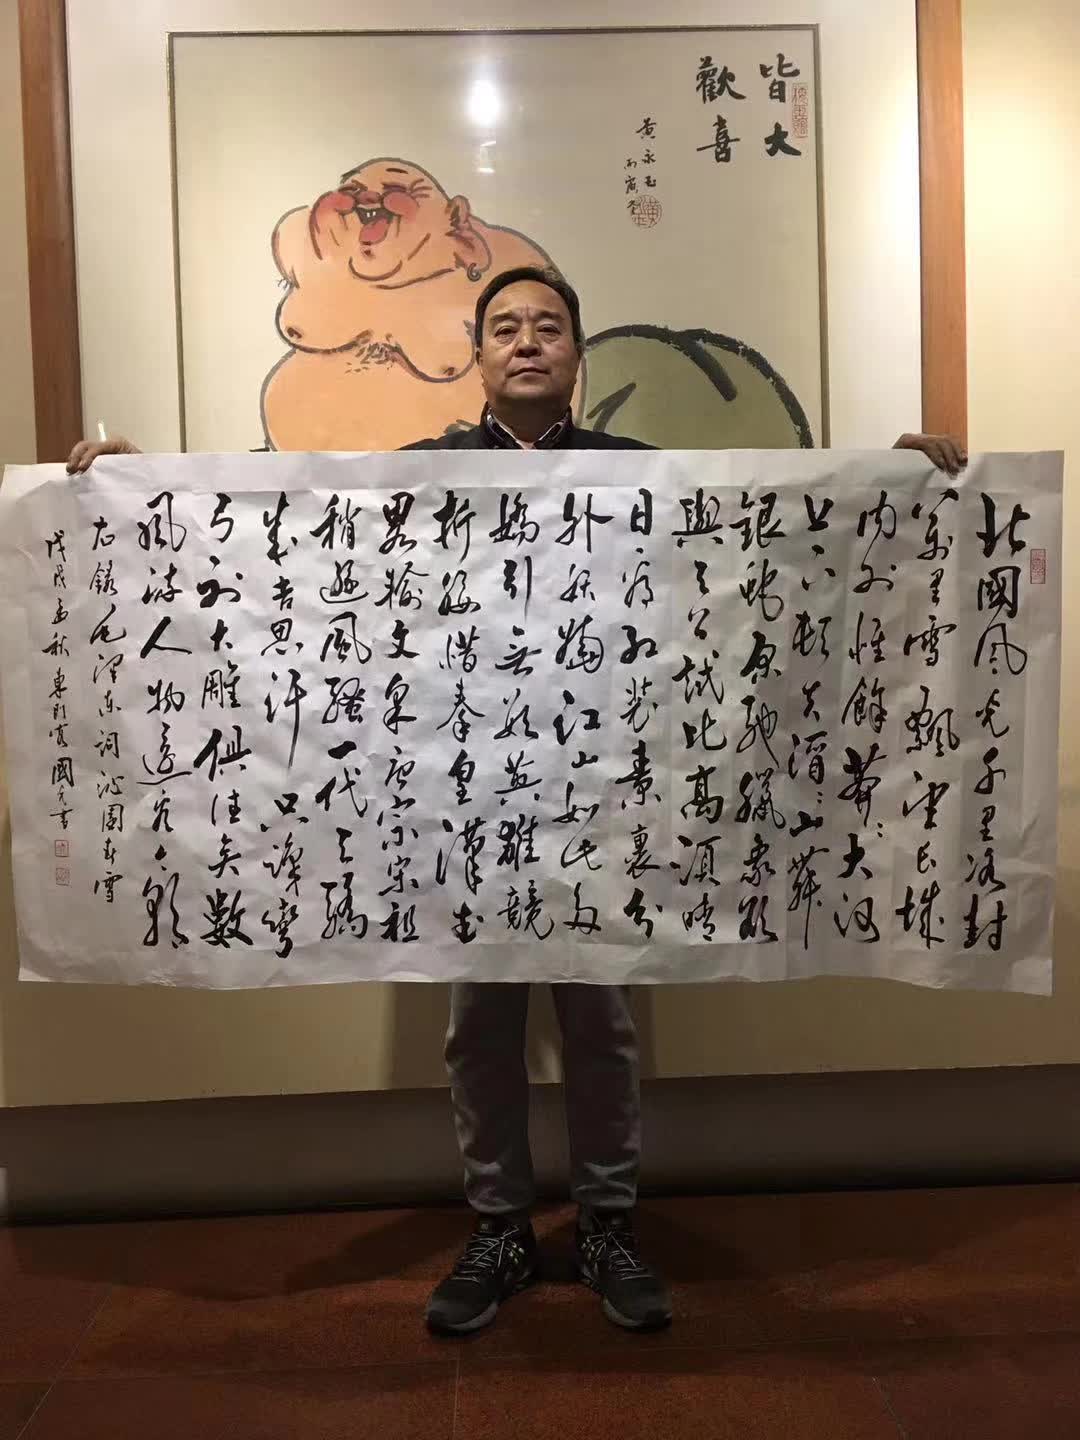 皆大
歡喜
黄永玉
丙寅冬
北國風光千里冰封
萬里雪飄望長城
内外惟餘莽莽大河
上下頓失滔滔山舞
銀蛇原馳臘象欲
與天公試比高須晴
日看紅裝素裹分
外妖嬈江山如此多
嬌引無數英雄競
折腰惜秦皇漢武
畧輸文采唐宗宋祖
稍遜風騷一代天驕
成吉思汗只識彎
弓射大雕俱往矣數
風流人物還看今朝
右錄毛澤東詞沁園春雪
戊戌 秋東 國 書